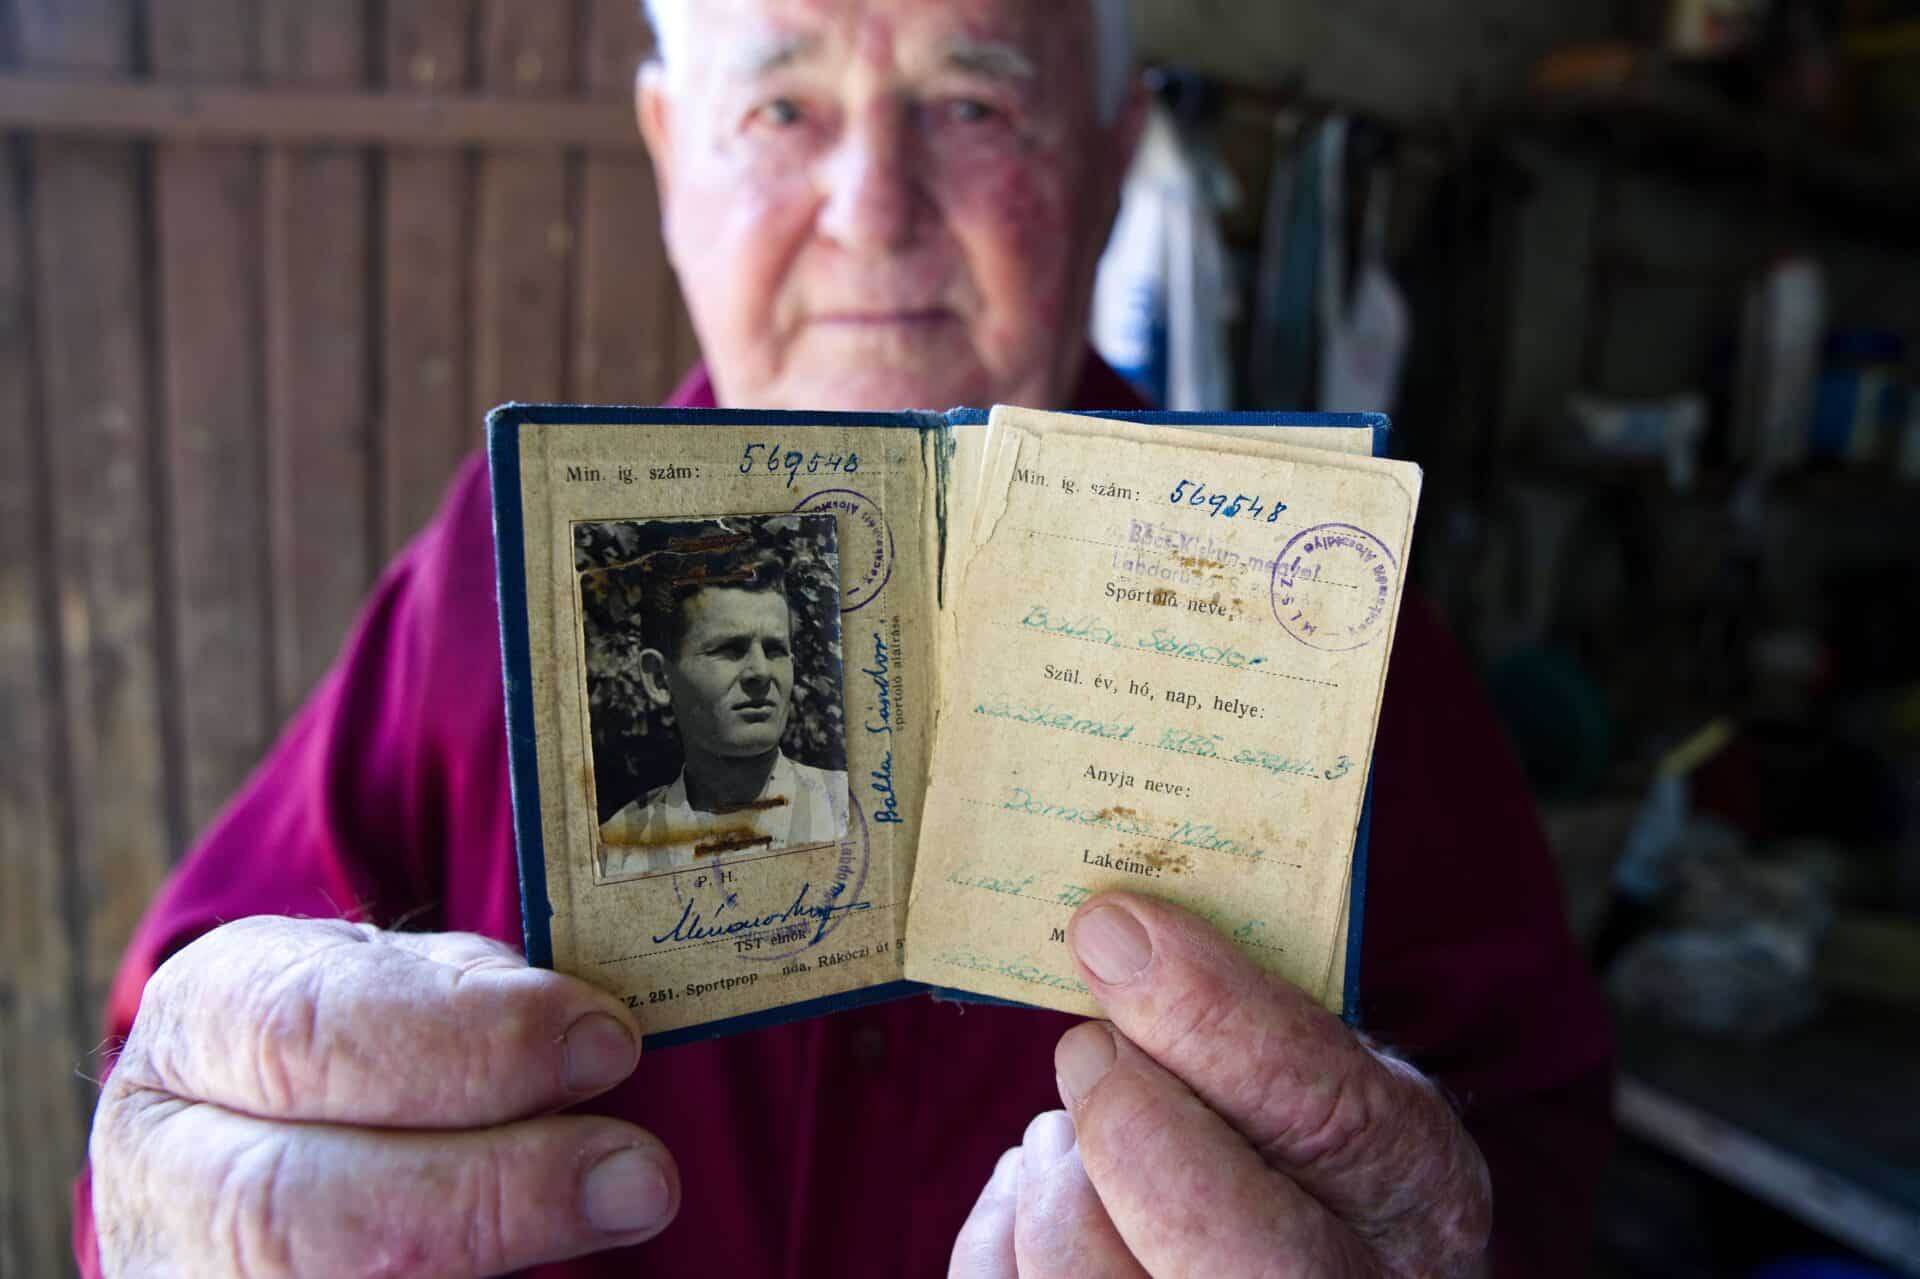 Min. ig. szám: 569548
Balla Sándor
sportoló aláírása
P. H.
TST elnök
Z. 251. Sportprop nda, Rákóczi út 5
Min. ig. szám: 569548
Bács-Kiskun megyei
Labdarúgó
M L S Z
Sportoló neve:
Balla Sándor
Szül. év, hó, nap, helye:
Kecskemét 1935. szept. 3
Anyja neve:
Mária
Lakcíme:
5
M